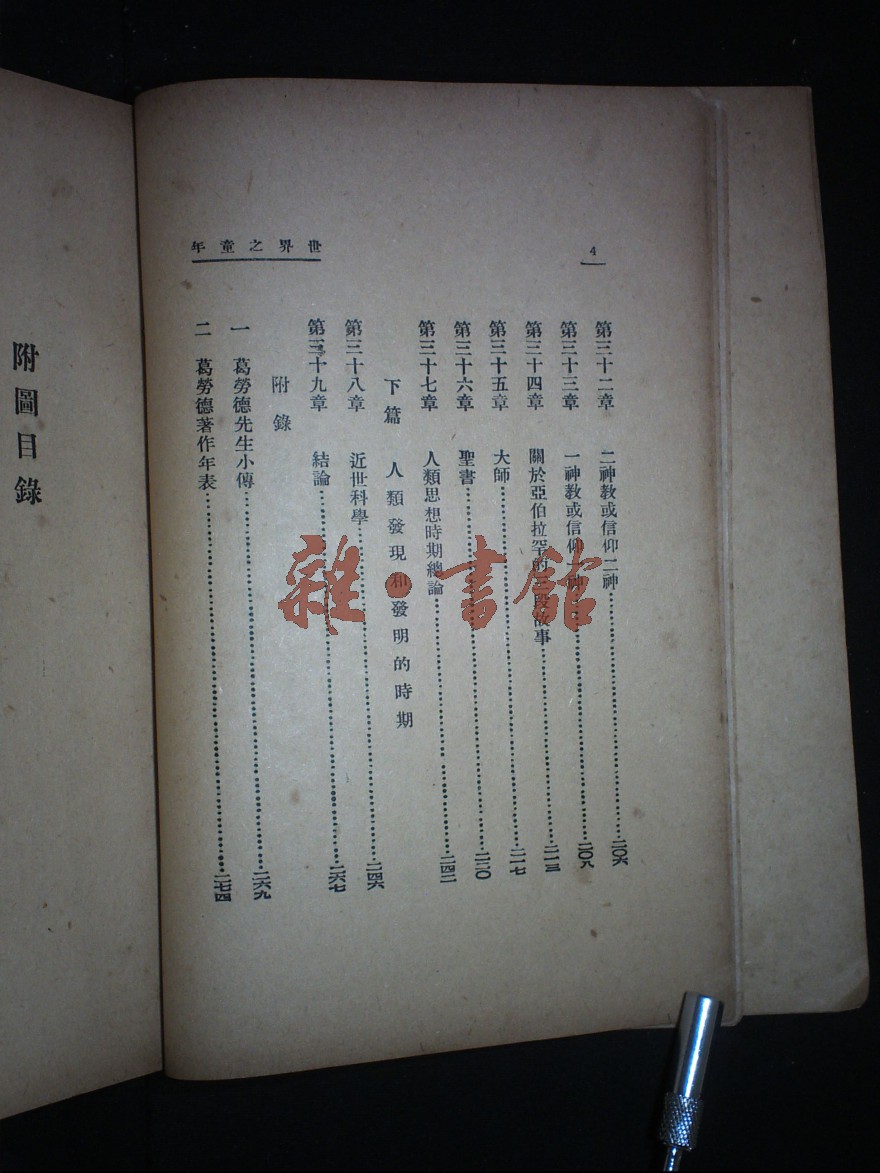 世界之童年
4
第三十二章 二神教或信仰二神……二〇六
第三十三章 一神教或信仰一神……二〇九
第三十四章 關於亞伯拉罕的三段故事……二一三
第三十五章 大師……二一七
第三十六章 聖書……二三〇
第三十七章 人類思想時期總論……二四二
下篇 人類發現和發明的時期
第三十八章 近世科學……二四六
第三十九章 結論……二六七
附錄
一 葛勞德先生小傳……二六九
二 葛勞德著作年表……二七四
附圖目錄
雜·書館